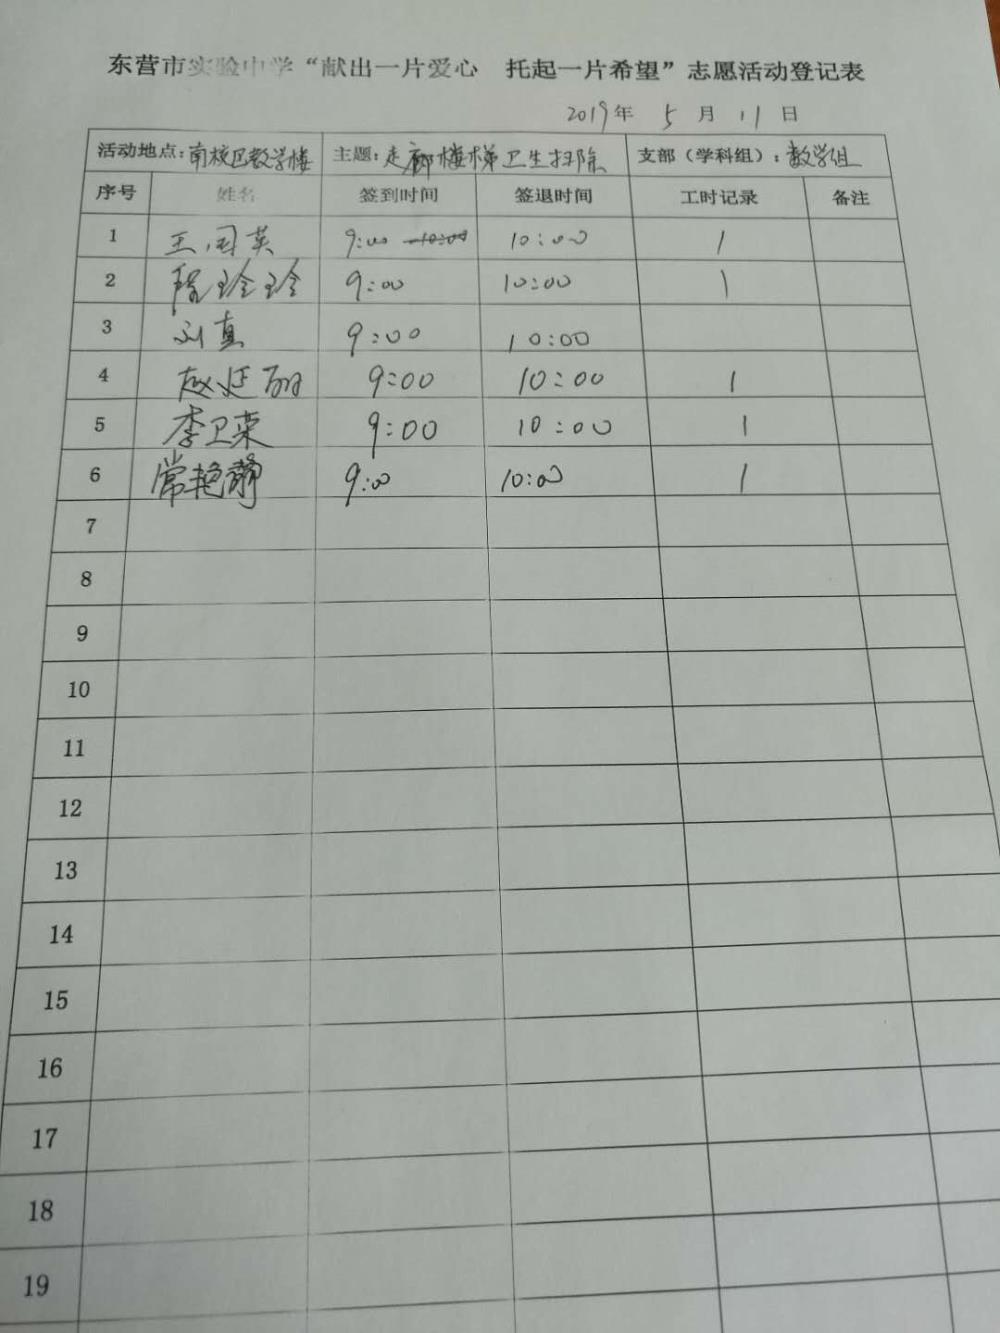 东营市实验中学“献出一片爱心 托起一片希望”志愿活动登记表
2019年 5 月 11 日
活动地点：南校区教学楼 主题：走廊楼梯卫生扫除 支部（学科组）：数学组
序号 姓名 签到时间 签退时间 工时记录 备注
1 王国英 9:00 10:00 10:00 1
2 陈玲玲 9:00 10:00 1
3 刘真 9:00 10:00
4 赵廷丽 9:00 10:00 1
5 李卫荣 9:00 10:00 1
6 常艳静 9:00 10:00 1
7
8
9
10
11
12
13
14
15
16
17
18
19